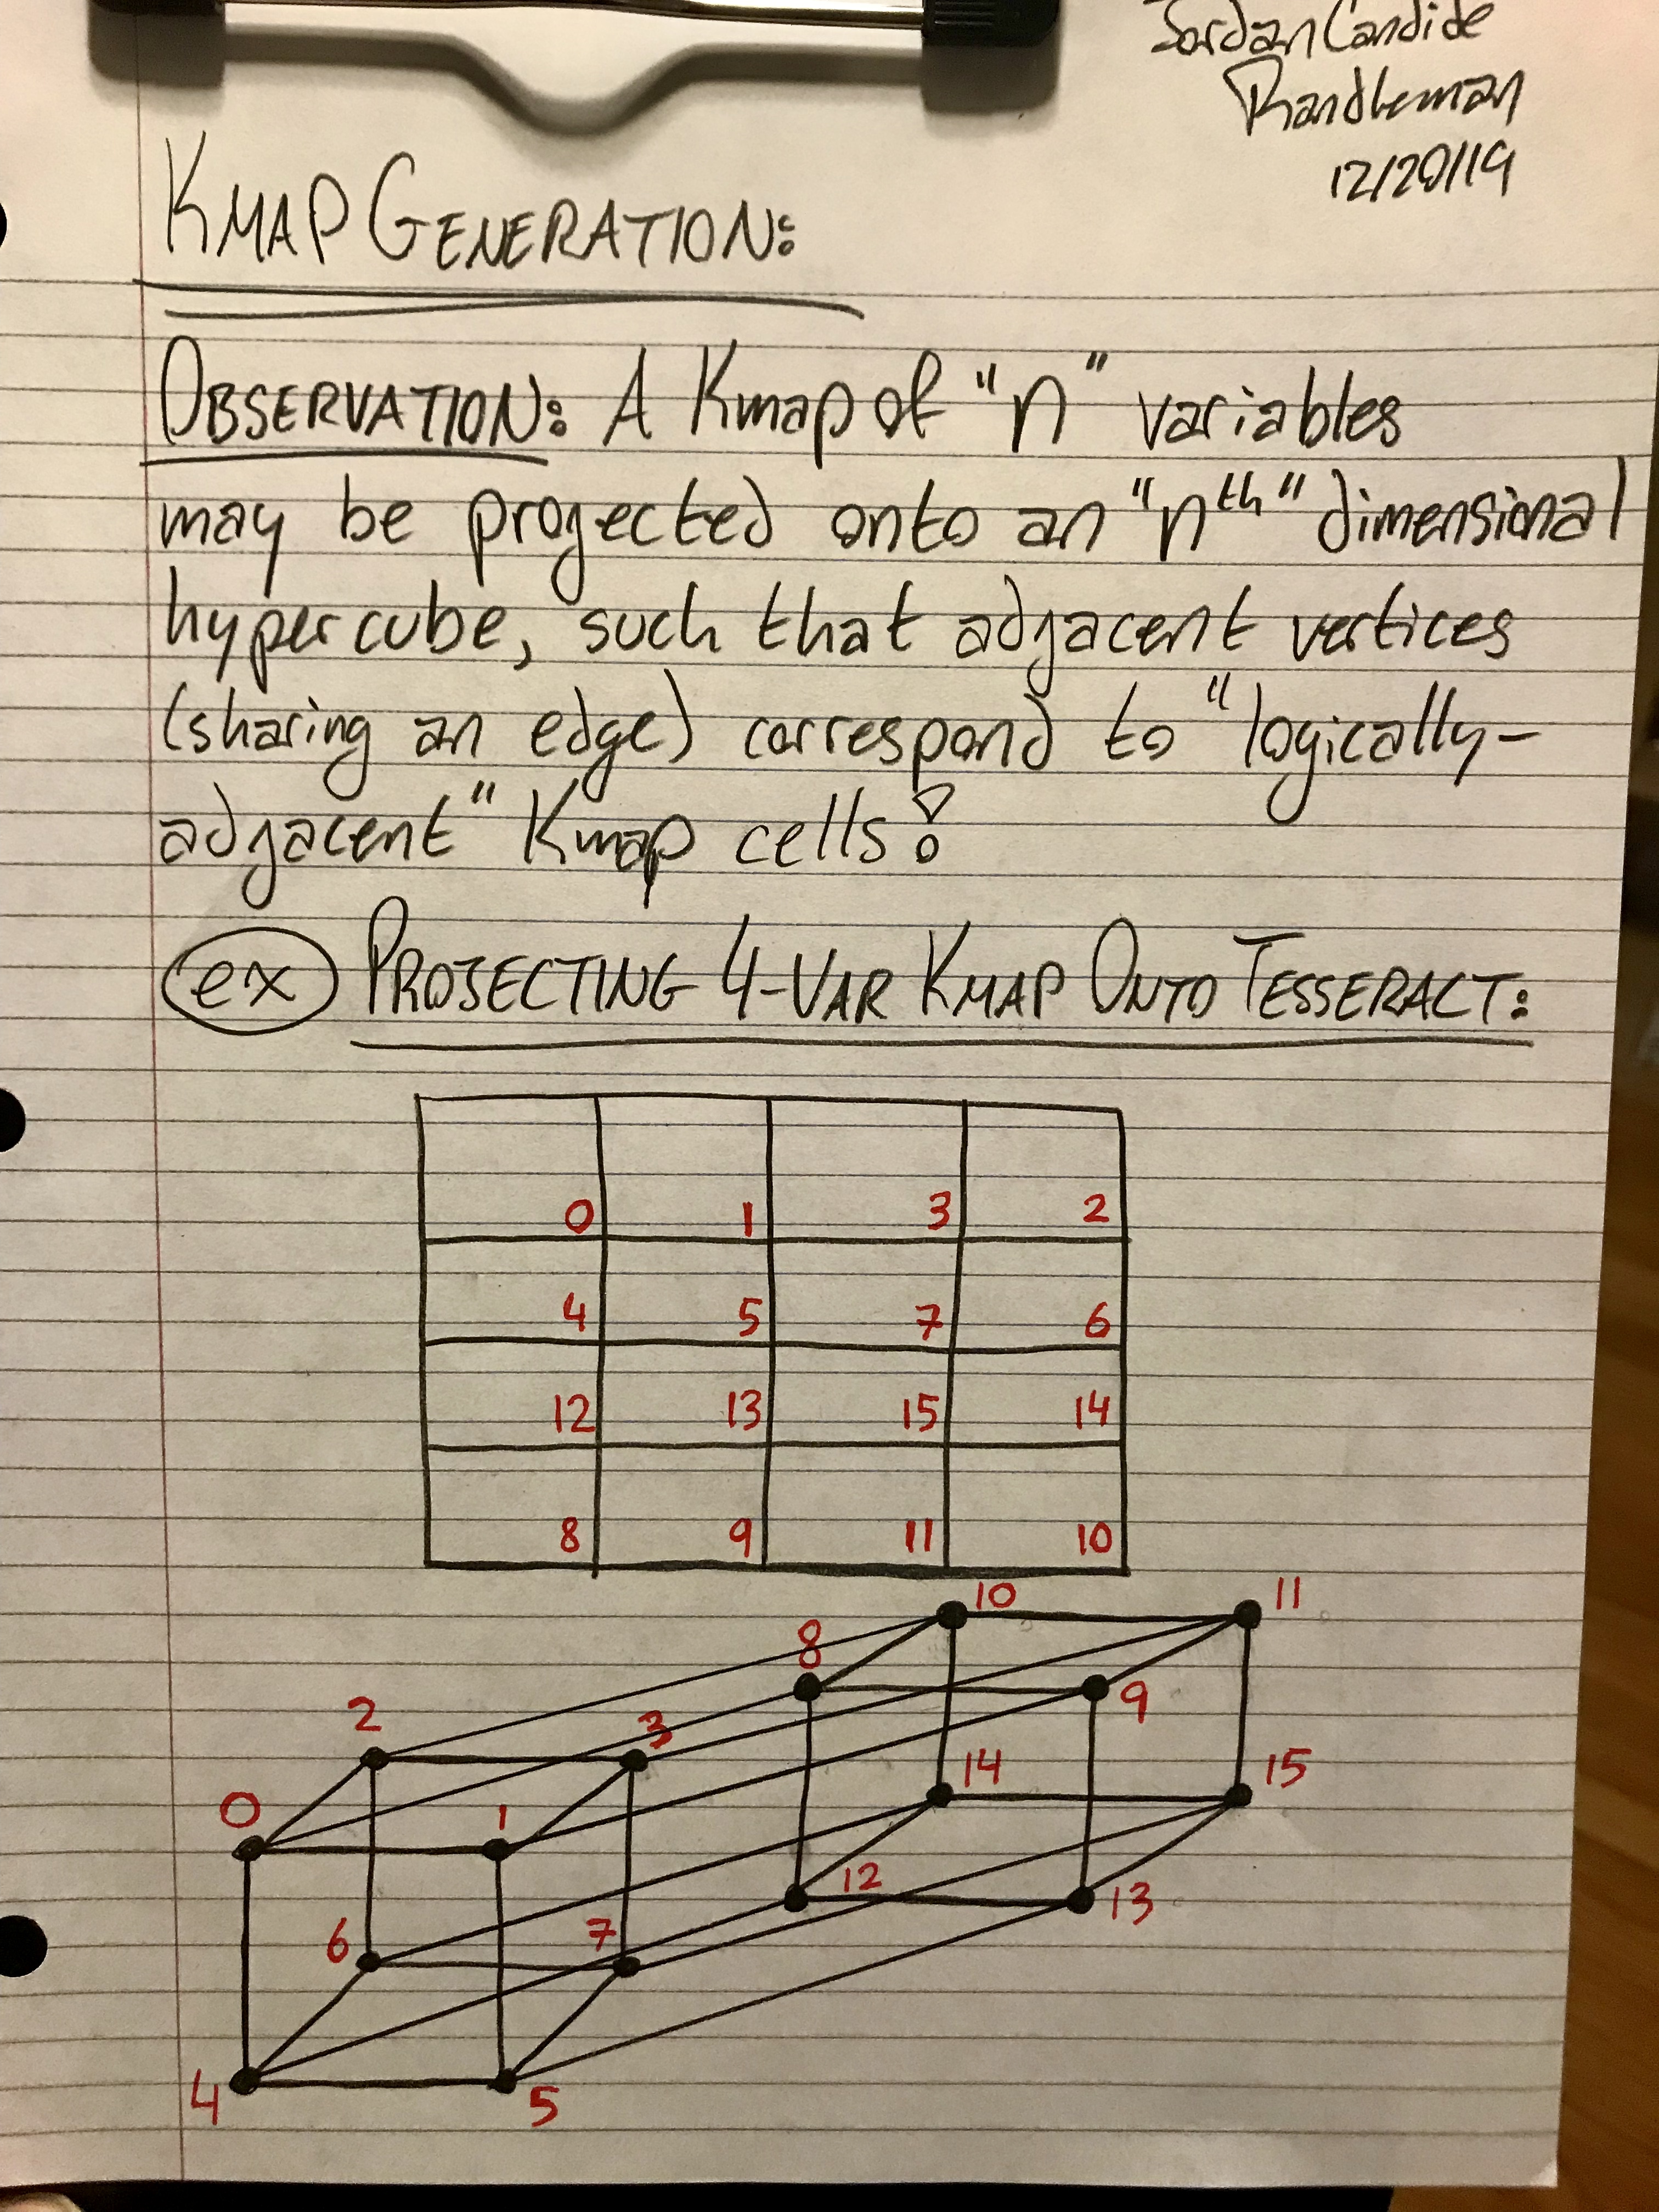 Jordan Candide
Randleman
12/20/19
KMAP GENERATION:
OBSERVATION: A Kmap of "n" variables
may be projected onto an "nth" dimensional
hypercube, such that adjacent vertices
(sharing an edge) correspond to "logically-
adjacent" Kmap cells!
ex PROJECTING 4-VAR KMAP ONTO TESSERACT:
0 1 3 2
4 5 7 6
12 13 15 14
8 9 11 10
10 11
8
9
2 3
14 15
0 1
12 13
6 7
4 5